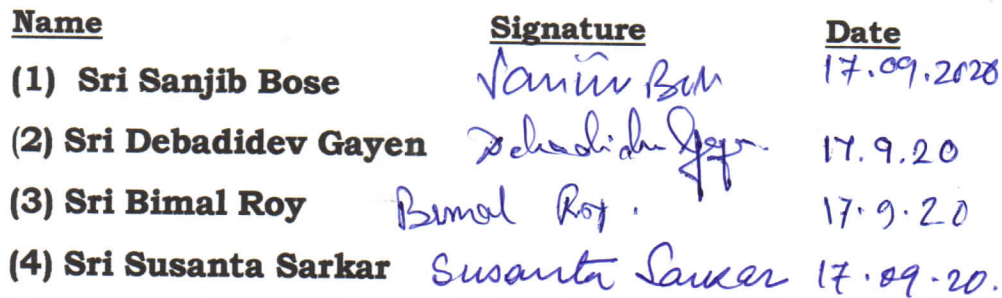 Name Signature Date
(1) Sri Sanjib Bose Sanjib Bose 17.09.2020
(2) Sri Debadidev Gayen Debadidev Gayen 17.9.20
(3) Sri Bimal Roy Bimal Roy. 17.9.20
(4) Sri Susanta Sarkar Susanta Sarkar 17.09.20.